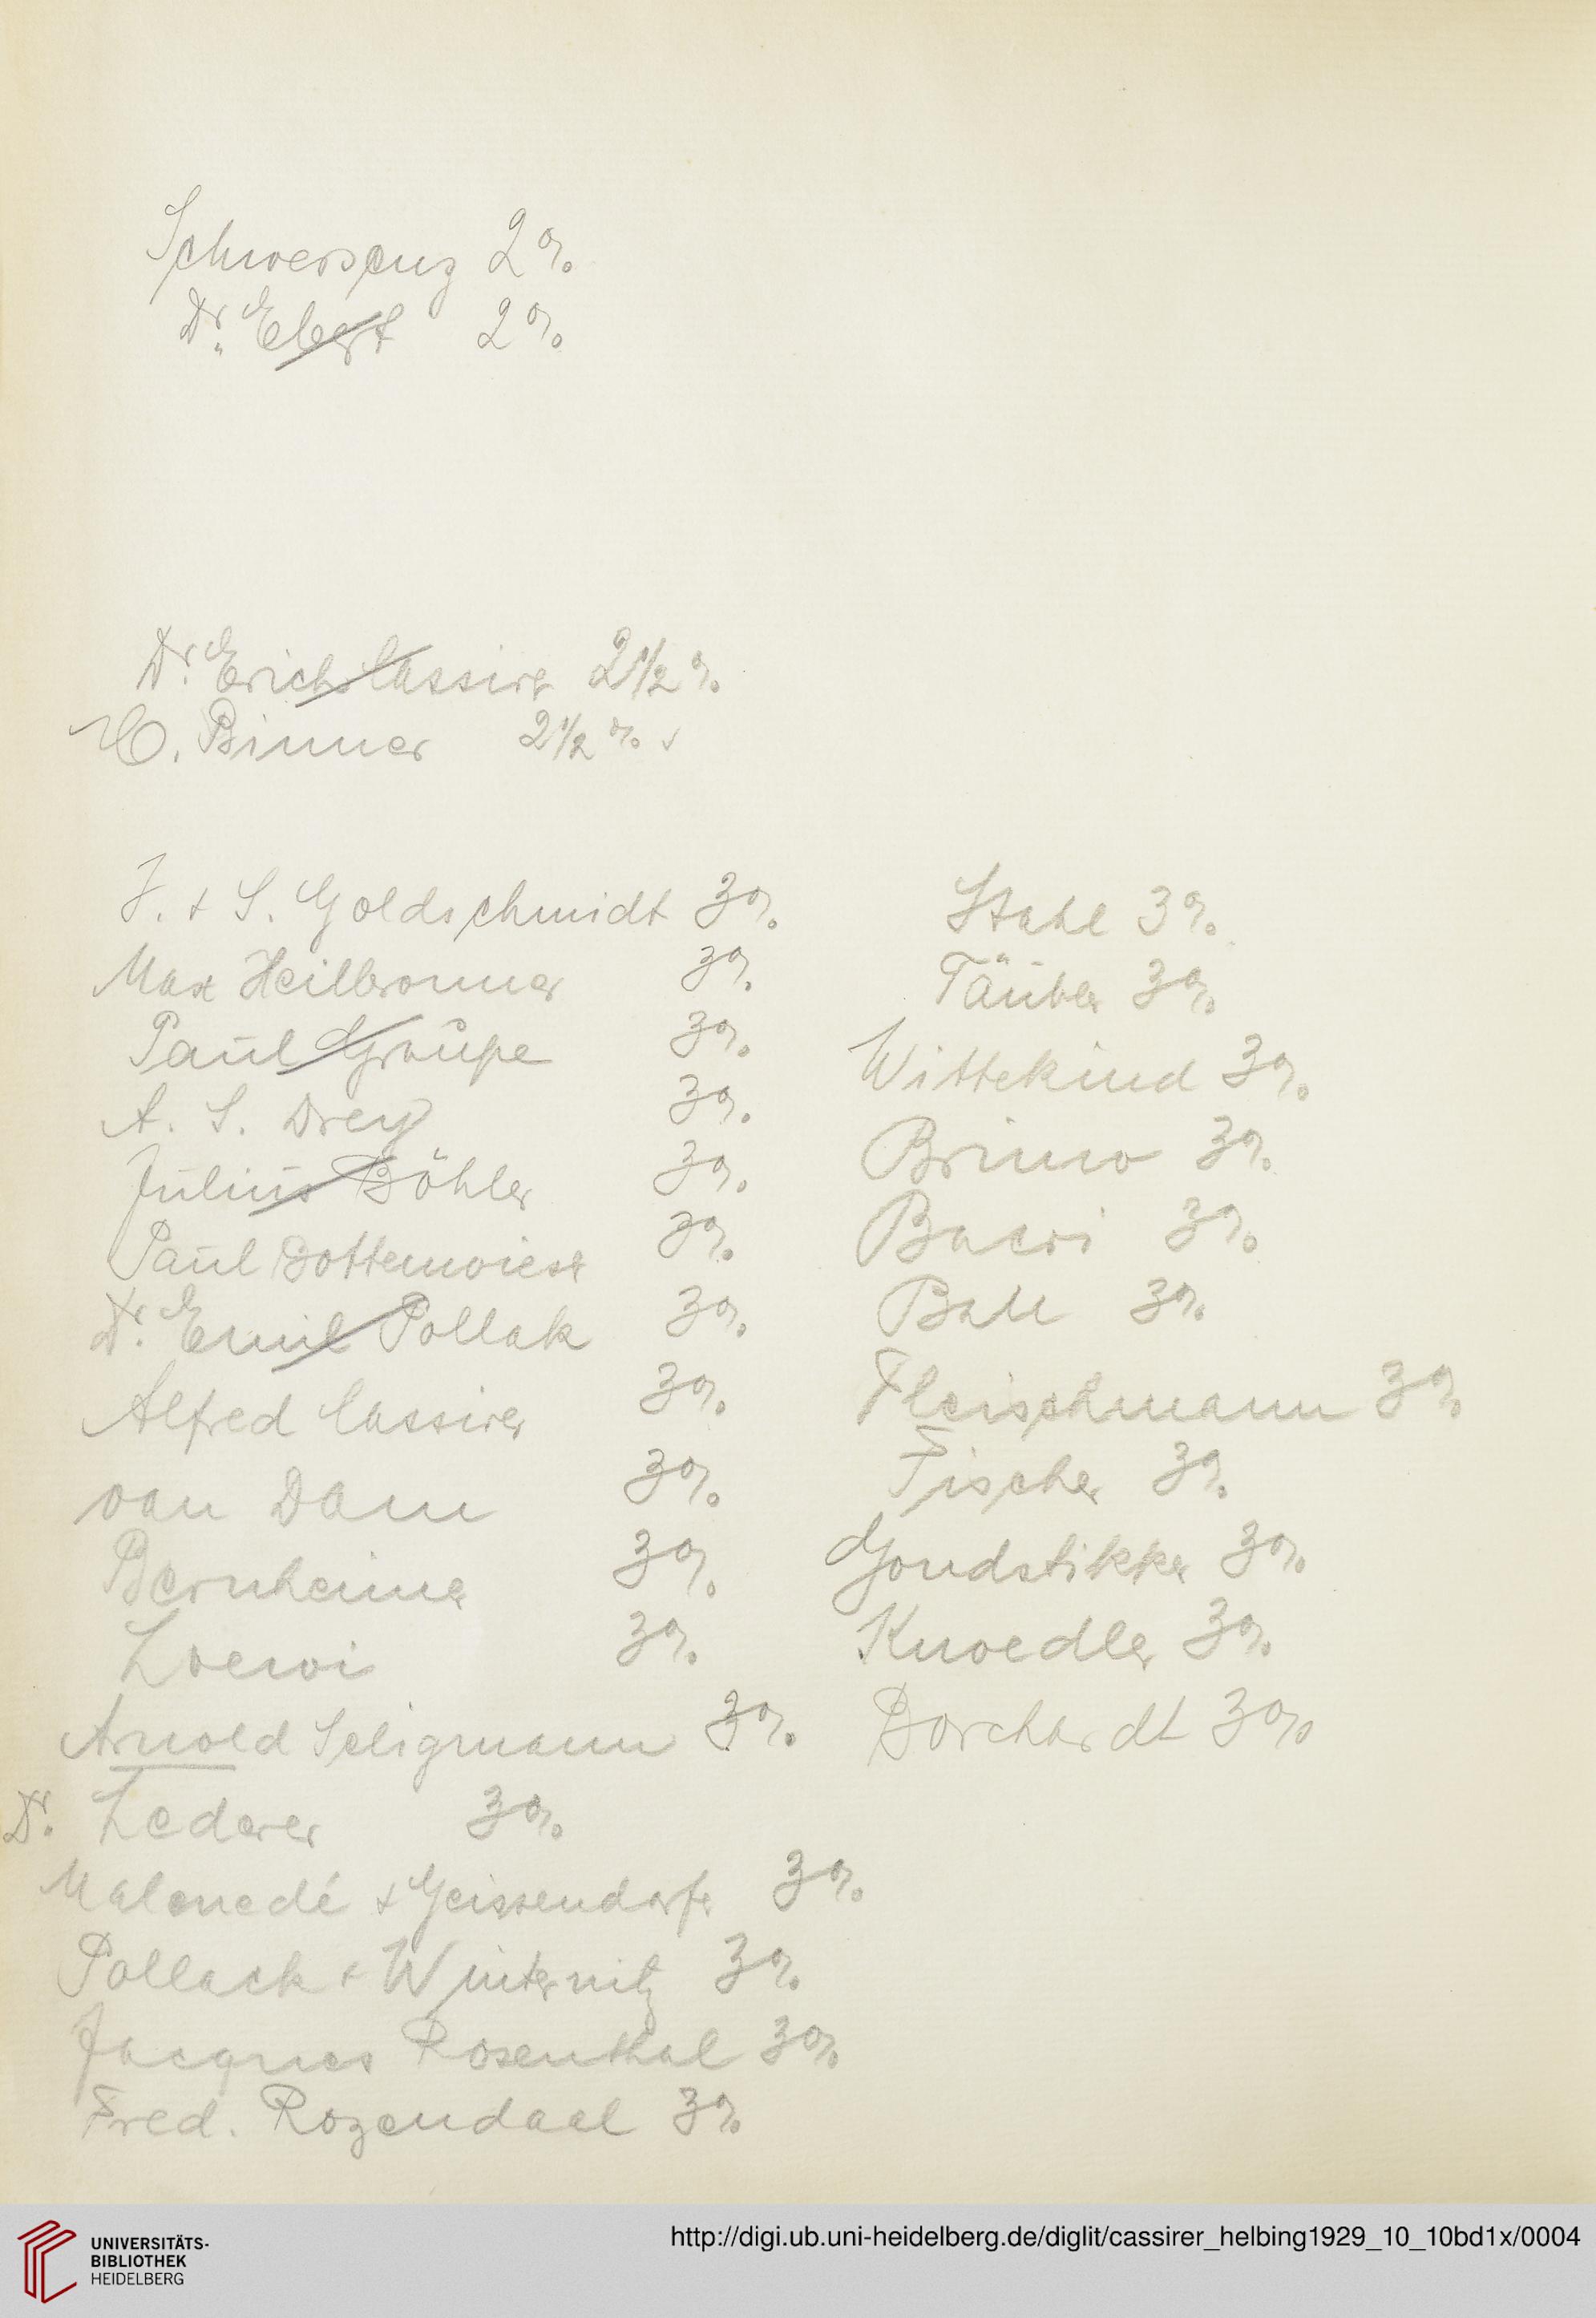 Schwersenz 2%
Dr. Ebert 2%
Dr. Erich Cassirer 2 1/2 %
H. Binner 2 1/2 % ✓
J. + S. Goldschmidt 3%
Max Heilbronner 3%
Paul Graupe 3%
A. S. Drey 3%
Julius Böhler 3%
Paul Bottenwieser 3%
Dr. Emil Pollak 3%
Alfred Cassirer 3%
van Dam 3%
Bernheimer 3%
Loewi 3%
Arnold Seligmann 3%
Dr. Lederer 3%
Malmedé + Geissendorfer 3%
Pollack + Winternitz 3%
Jacques Rosenthal 3%
Fred. Rozendaal 3%
Stahl 3%
Täuber 3%
Wittekind 3%
Brimo 3%
Bacri 3%
Ball 3%
Fleischmann 3%
Fischer 3%
Goudstikker 3%
Knoedler 3%
Borchardt 3%
UNIVERSITÄTS-
BIBLIOTHEK
HEIDELBERG
http://digi.ub.uni-heidelberg.de/diglit/cassirer_helbing1929_10_10bd1x/0004